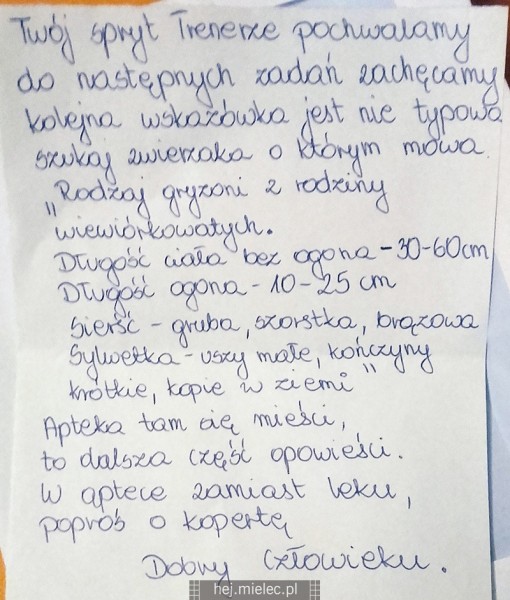 Twój spryt Trenerze pochwalamy
do następnych zadań zachęcamy
kolejna wskazówka jest nie typowa
szukaj zwierzaka o którym mowa.
"Rodzaj gryzoni z rodziny
wiewiórkowatych.
Długość ciała bez ogona - 30-60cm
Długość ogona - 10-25 cm
Sierść - gruba, szorstka, brązowa
Sylwetka - uszy małe, kończyny
krótkie, kopie w ziemi"
Apteka tam się mieści,
to dalsza część opowieści.
W aptece zamiast leku,
poproś o kopertę
Dobry Człowieku.
hej.mielec.pl